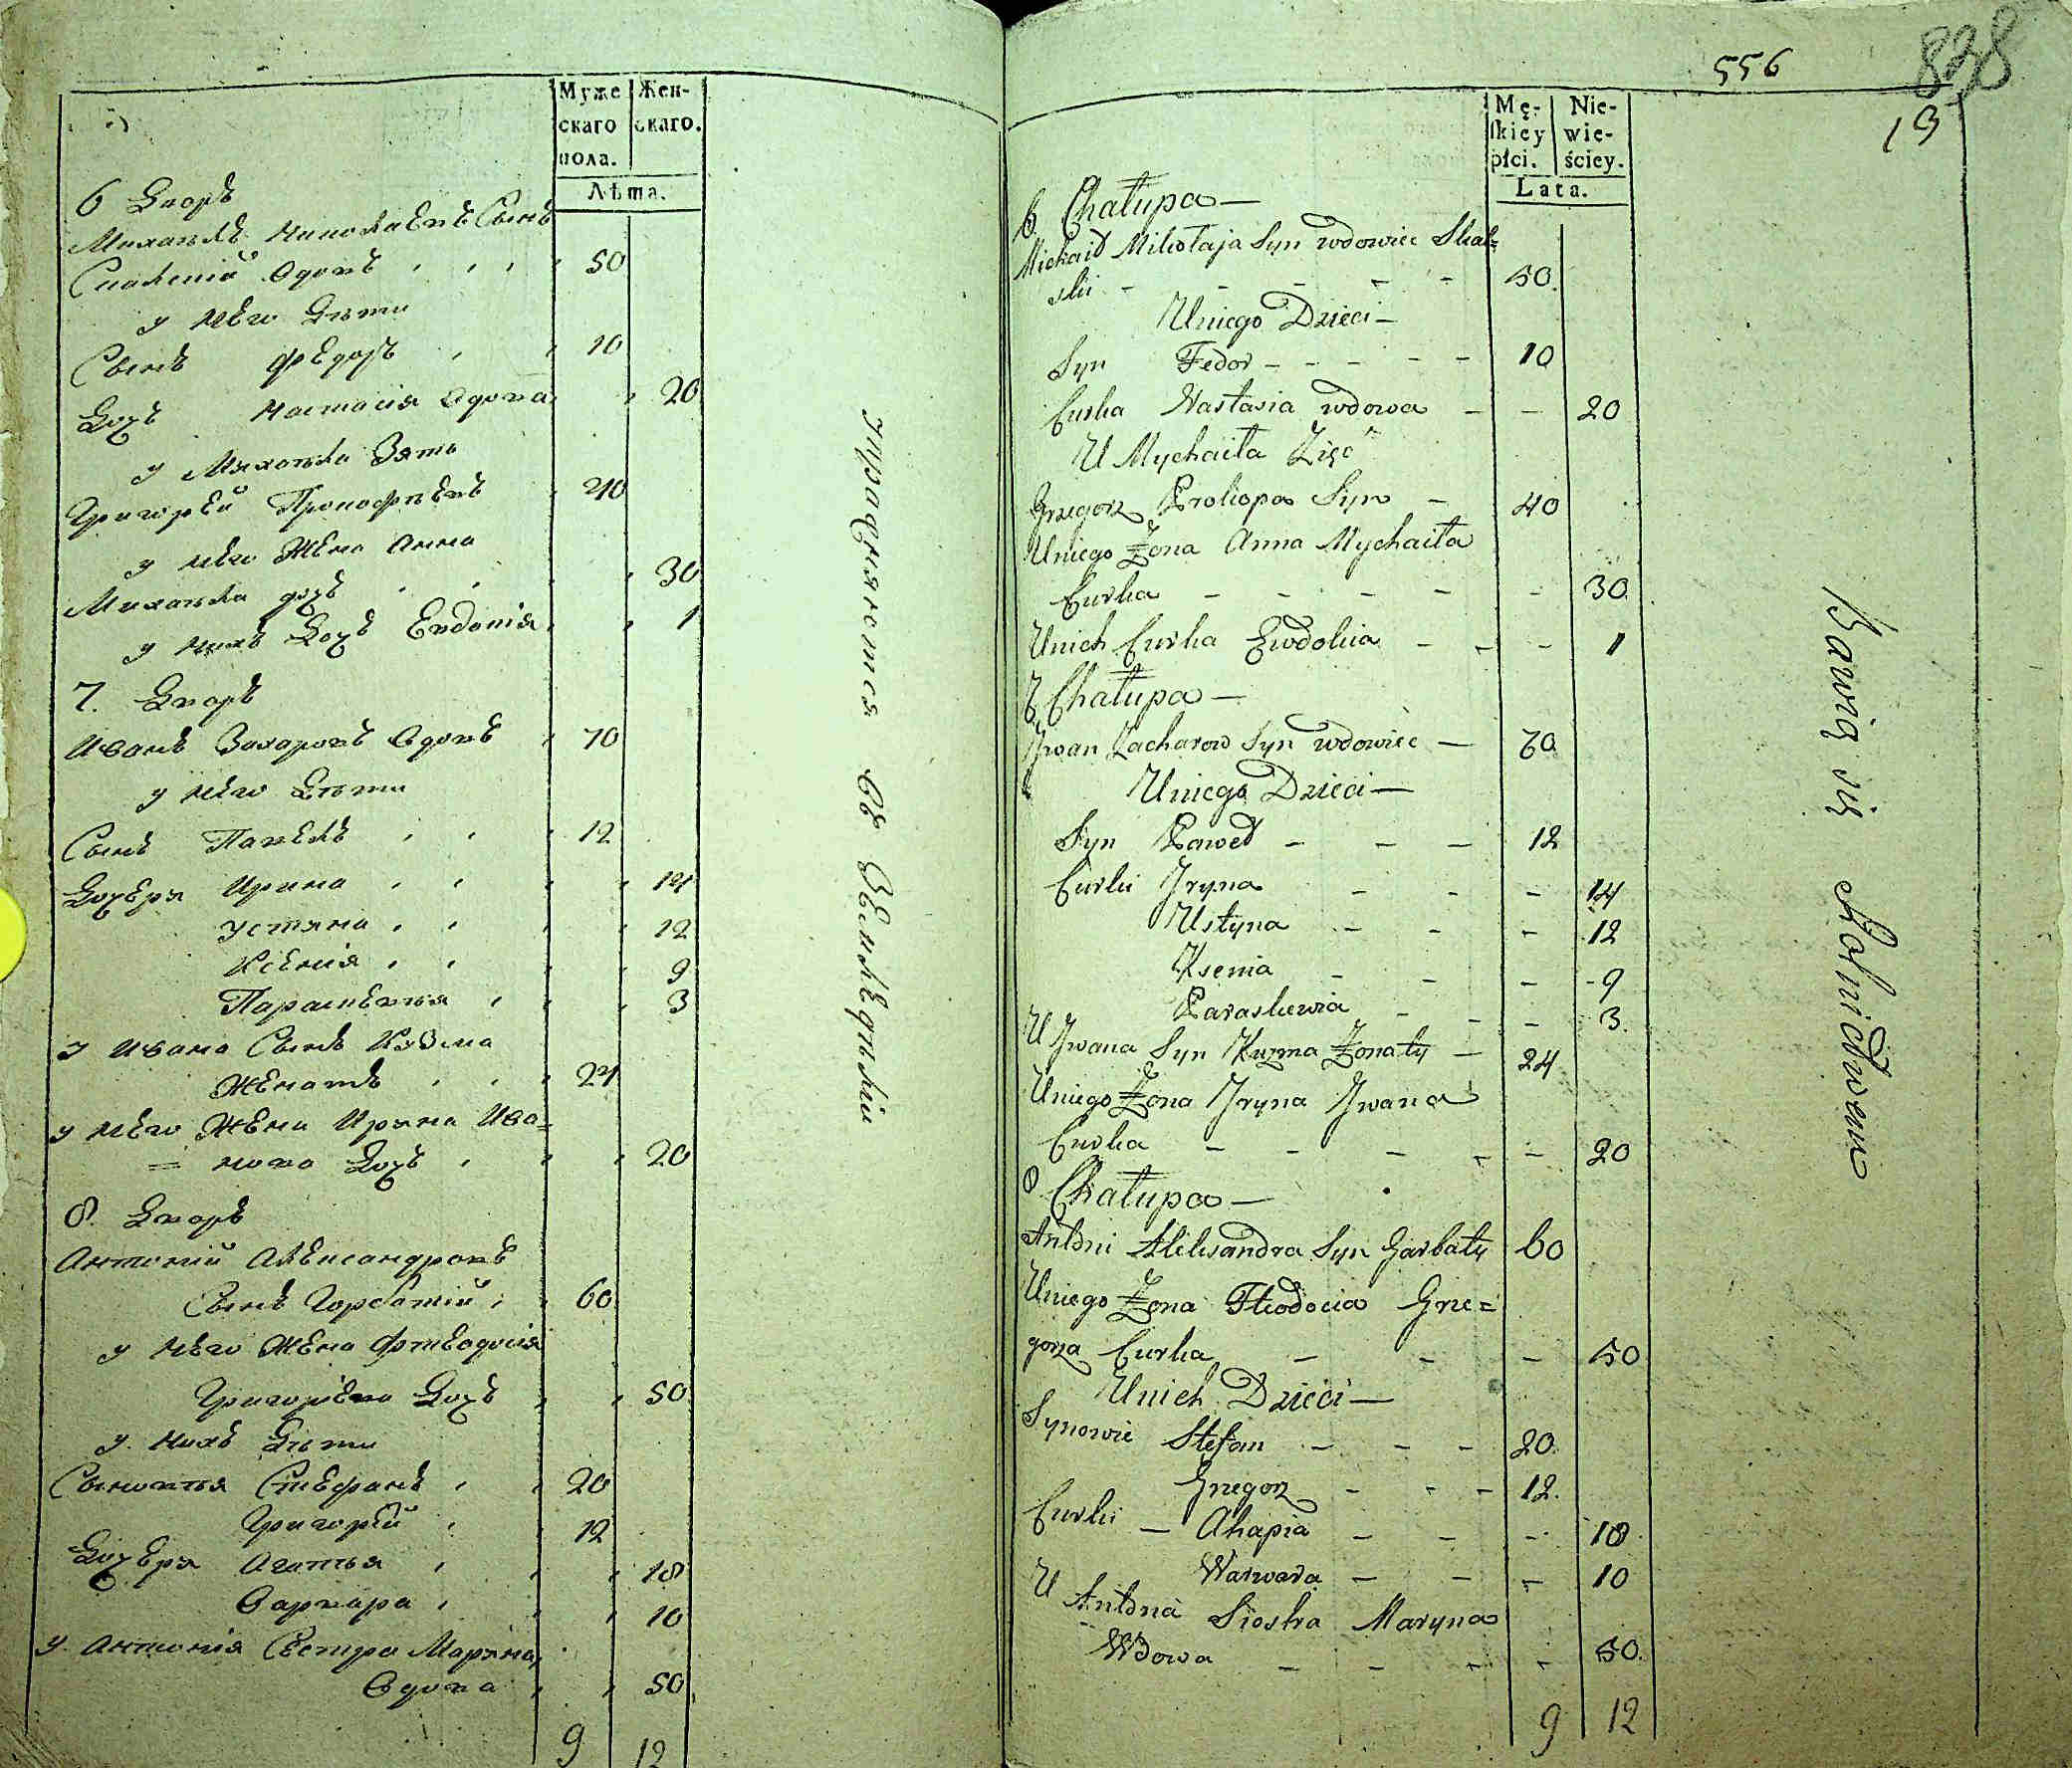 Муже
скаго
пола.
Жен-
скаго.
Лѣта.
6 Дворъ
Михаилъ Николаевъ Сынъ
Скальскій вдовъ 50
у него Дѣти
Сынъ Федоръ 10
Дочь Настасія вдова 20
у Михаила Зять
Григорей Прокофьевъ 40
у него Жена Анна
Михаила дочь 30
у нихъ Дочь Евдокія 1
7. Дворъ
Иванъ Захаровъ вдовъ 70
у него Дѣти
Сынъ Павелъ 12
Дочери Ирина 14
Устина 12
Ксенія 9
Парасковья 3
у Ивана Сынъ Кузма
Женатъ 24
у него Жена Ирина Ива=
=нова Дочь 20
8. Дворъ
Антоній Александровъ
Сынъ Горбатій 60
у него Жена Фтеодосія
Григоріева Дочь 50
у нихъ Дѣти
Сыновья Стефанъ 20
Григорій 12
Дочери Агапія 18
Варвара 10
у Антонія Сестра Марина
Вдова 50
9 12
упражняются въ Земледѣліи
556
838
19
Mę-
skiey
płci.
Nie-
wie-
ściey.
Lata.
6. Chałupa —
Michaił Mikołaja Syn wdowiec Skal=
ski 50.
Uniego Dzieci —
Syn Fedor 10
Curka Nastasia wdowa 20
U Mychaiła Zięć
Grzegorz Prokopa Syn 40
Uniego Żona Anna Mychaiła
Curka 30.
Unich Curka Ewdokia 1
7 Chałupa —
Jwan Zacharow Syn wdowiec — 70
Uniego Dzieci —
Syn Paweł 12
Curki Jryna 14
Ustyna 12
Ksenia 9
Paraskewia 3.
U Jwana Syn Kuzma Żonaty 24
Uniego Żona Jryna Jwana
Curka 20
8 Chałupa —
Antoni Alexandra Syn Garbaty 60
Uniego Żona Fteodocia Grze=
gorza Curka 50
Unich Dzieci —
Synowie Stefan 20.
Grzegorz 12.
Curki — Ahapia 18
Warwara 10
U Antona Siostra Maryna
Wdowa 50.
9 12
Bawią się Rolnictwem